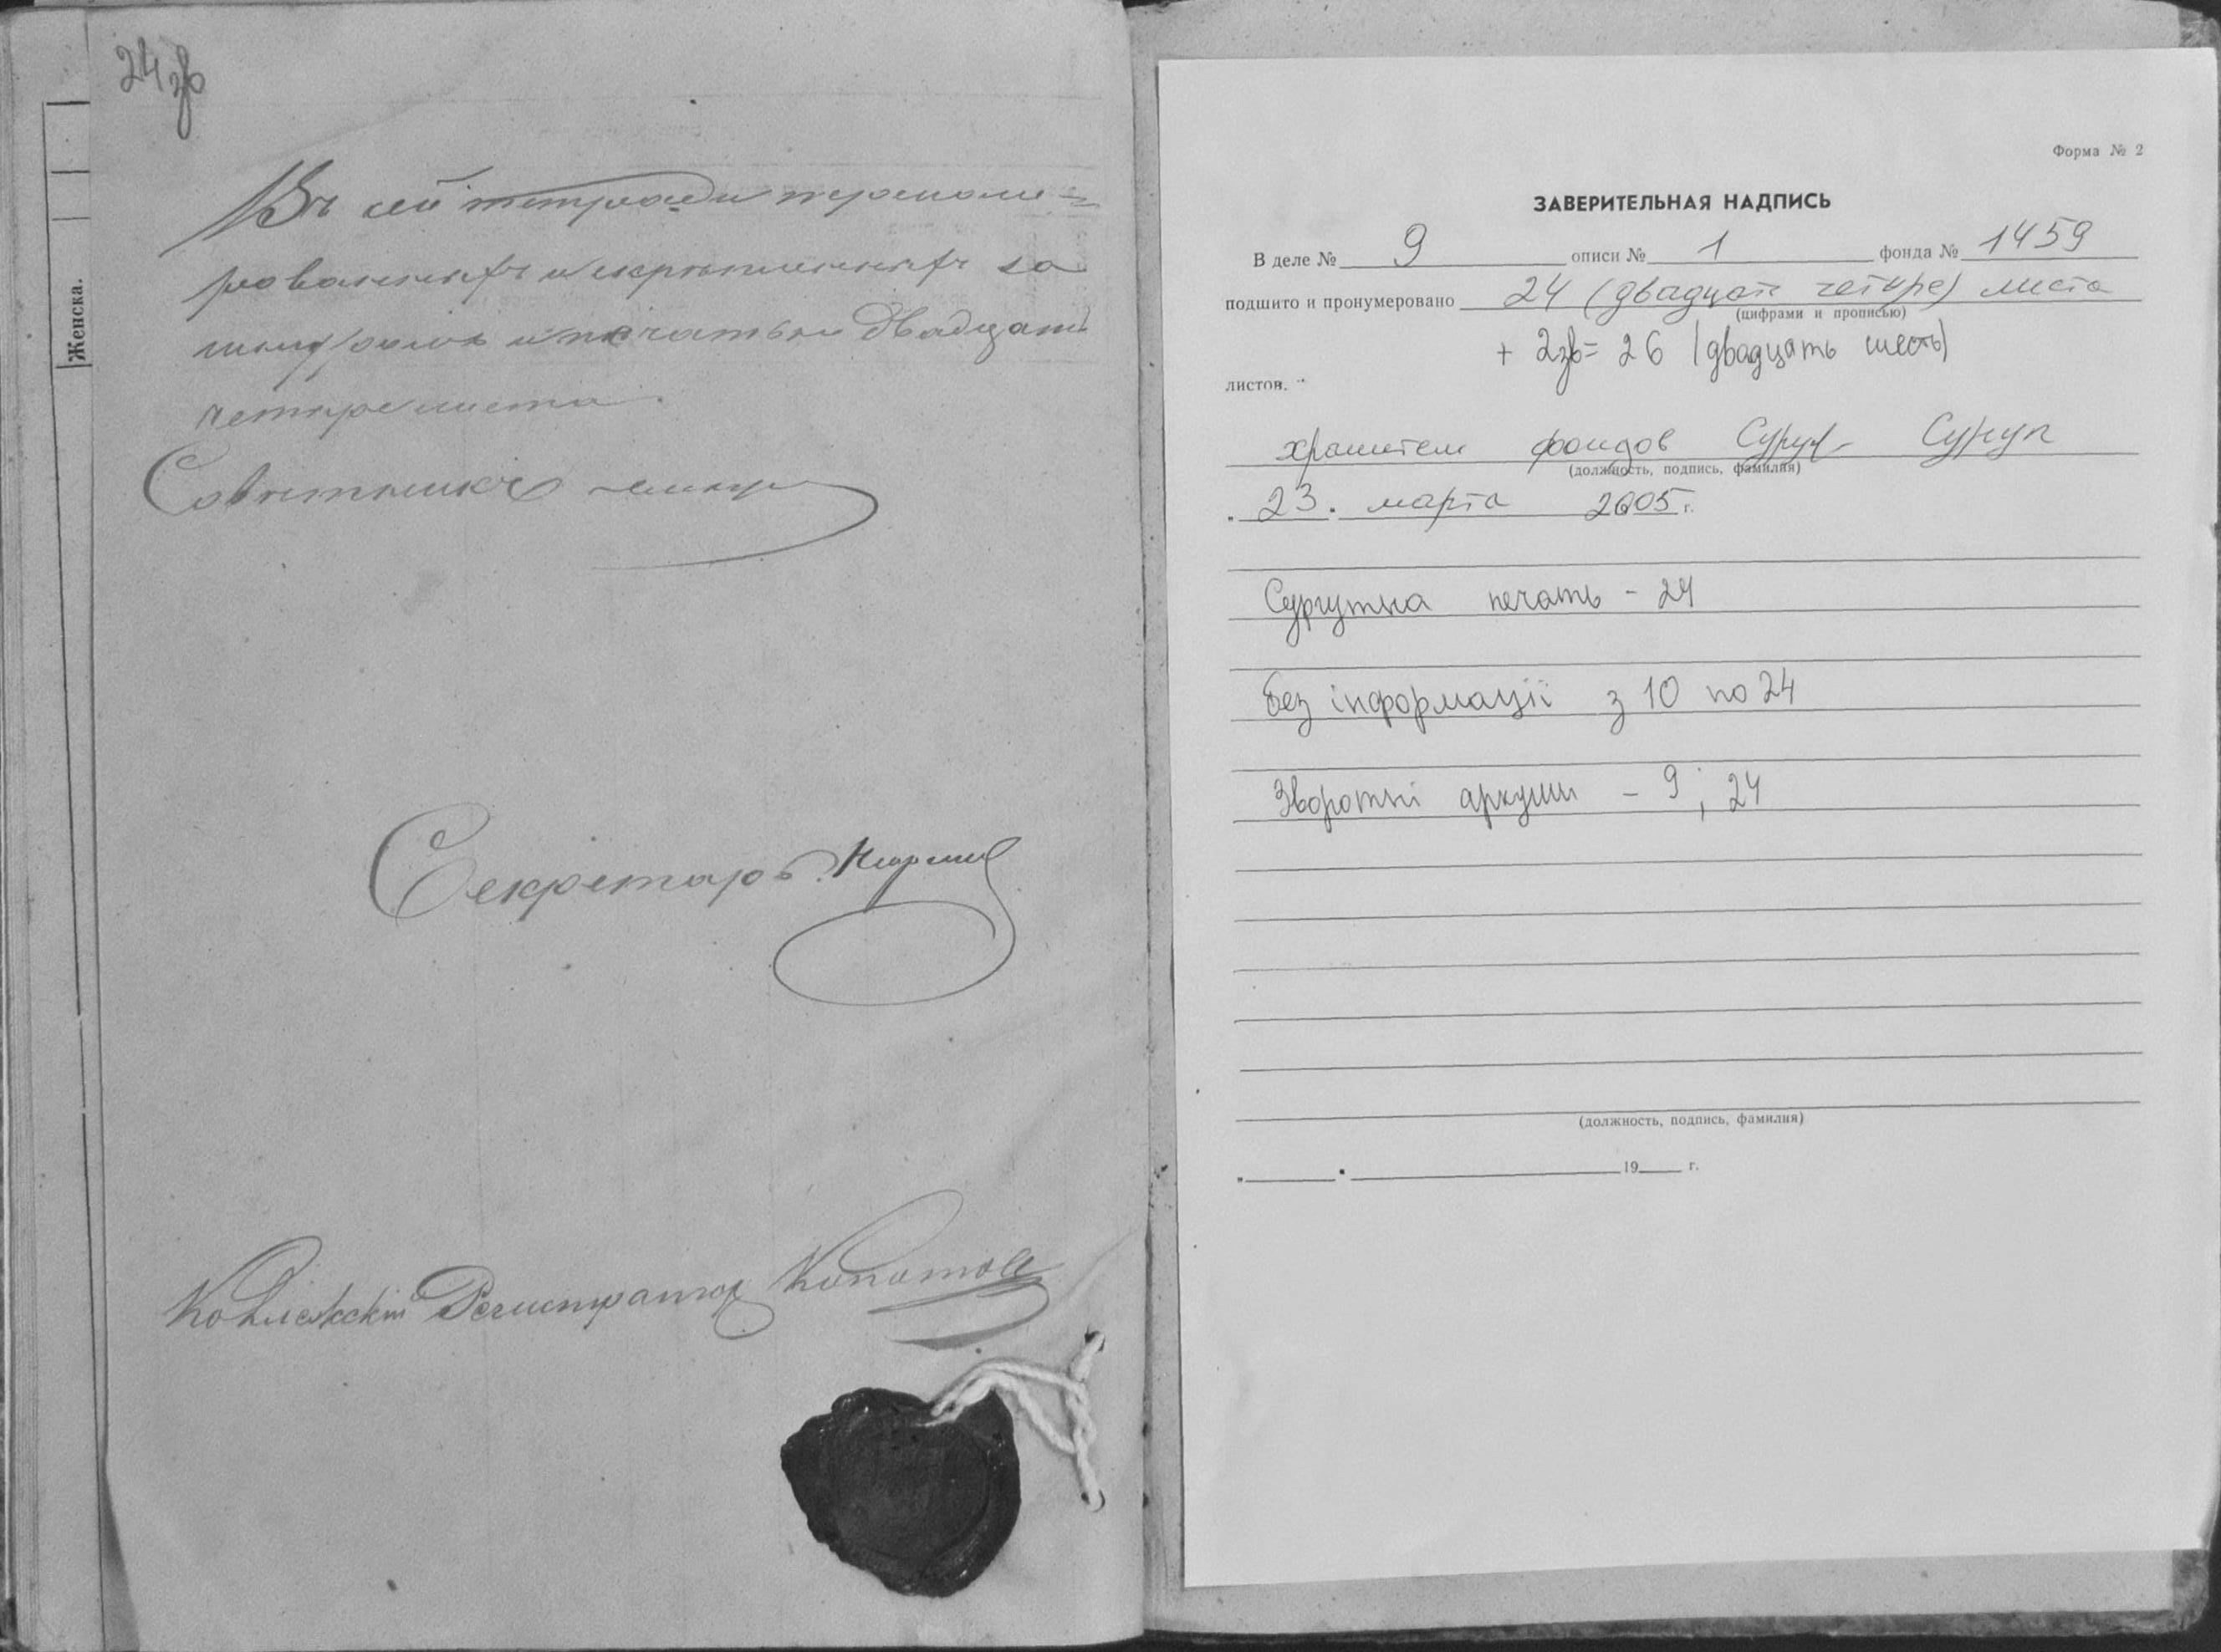 24зв
Женска.
Въ сей тетради перенуме=
рованныхъ и скрепленныхъ за
шнуромъ и печатью двадцать
четыре листа.
Советникъ
Секретарь
Коллежский Регистратор
Форма № 2
ЗАВЕРИТЕЛЬНАЯ НАДПИСЬ
В деле № 9 описи № 1 фонда № 1459
подшито и пронумеровано 24 (двадцать четыре) листа
(цифрами и прописью)
+ 2зв = 26 (двадцать шесть)
листов.
хранитель фондов
(должность, подпись, фамилия)
„ 23 " марта 2005 г.
Сургучна печать - 24
Без інформації з 10 по 24
Зворотні аркуши - 9; 24
(должность, подпись, фамилия)
19 г.